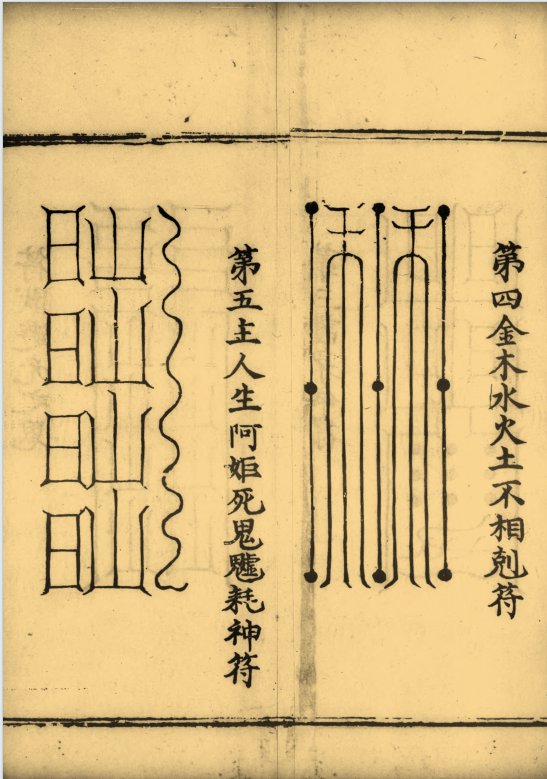 第四金木水火土不相剋符
第五主人生阿姫死鬼魖耗神符